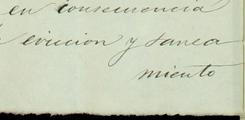 en consecuencia
eviccion y sanea
miento